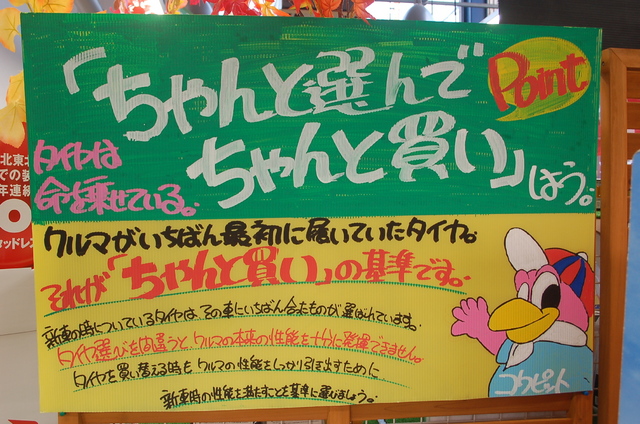 「ちゃんと選んで
Point
ちゃんと買い」しよう。
タイヤは
命を乗せている。
クルマがいちばん最初に履いていたタイヤ。
それが「ちゃんと買い」の基準です。
新車の時についているタイヤは、その車にいちばん合ったものが選ばれています。
タイヤ選びを間違うとクルマの本来の性能を十分に発揮できません。
タイヤを買い替える時もクルマの性能をしっかり引き出すために
新車時の性能を満たすことを基準に選びましょう。
コクピット
北東
での装
年連続